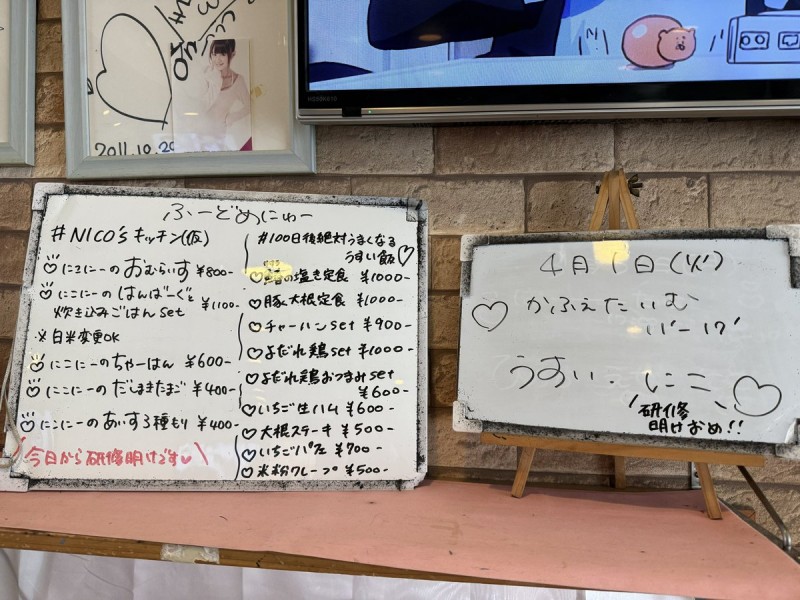 2011.10.20
ふーどめにゅー
#NICO'sキッチン(仮)
♡にこにーの おむらいす ¥800-
♡にこにーの はんばーぐと
炊き込みごはん set ¥1100-
※白米変更OK
♡にこにーの ちゃーはん ¥600-
♡にこにーの だしまきたまご ¥400-
♡にこにーの あいす3種もり ¥400-
今日から研修明けです♥
#100日後絶対うまくなる
うすい飯♡
の塩き定食 ¥1000-
♡豚大根定食 ¥1000-
♡チャーハンset ¥900-
♡よだれ鶏set ¥1000-
♡よだれ鶏おつまみset
¥600-
♡いちご生ハム ¥600-
♡大根ステーキ ¥500-
♡いちごパフェ ¥700-
♡米粉クレープ ¥500-
4月1日(火)
♡かふぇたいむ
うすい.にこ♡
研修
明けおめ!!